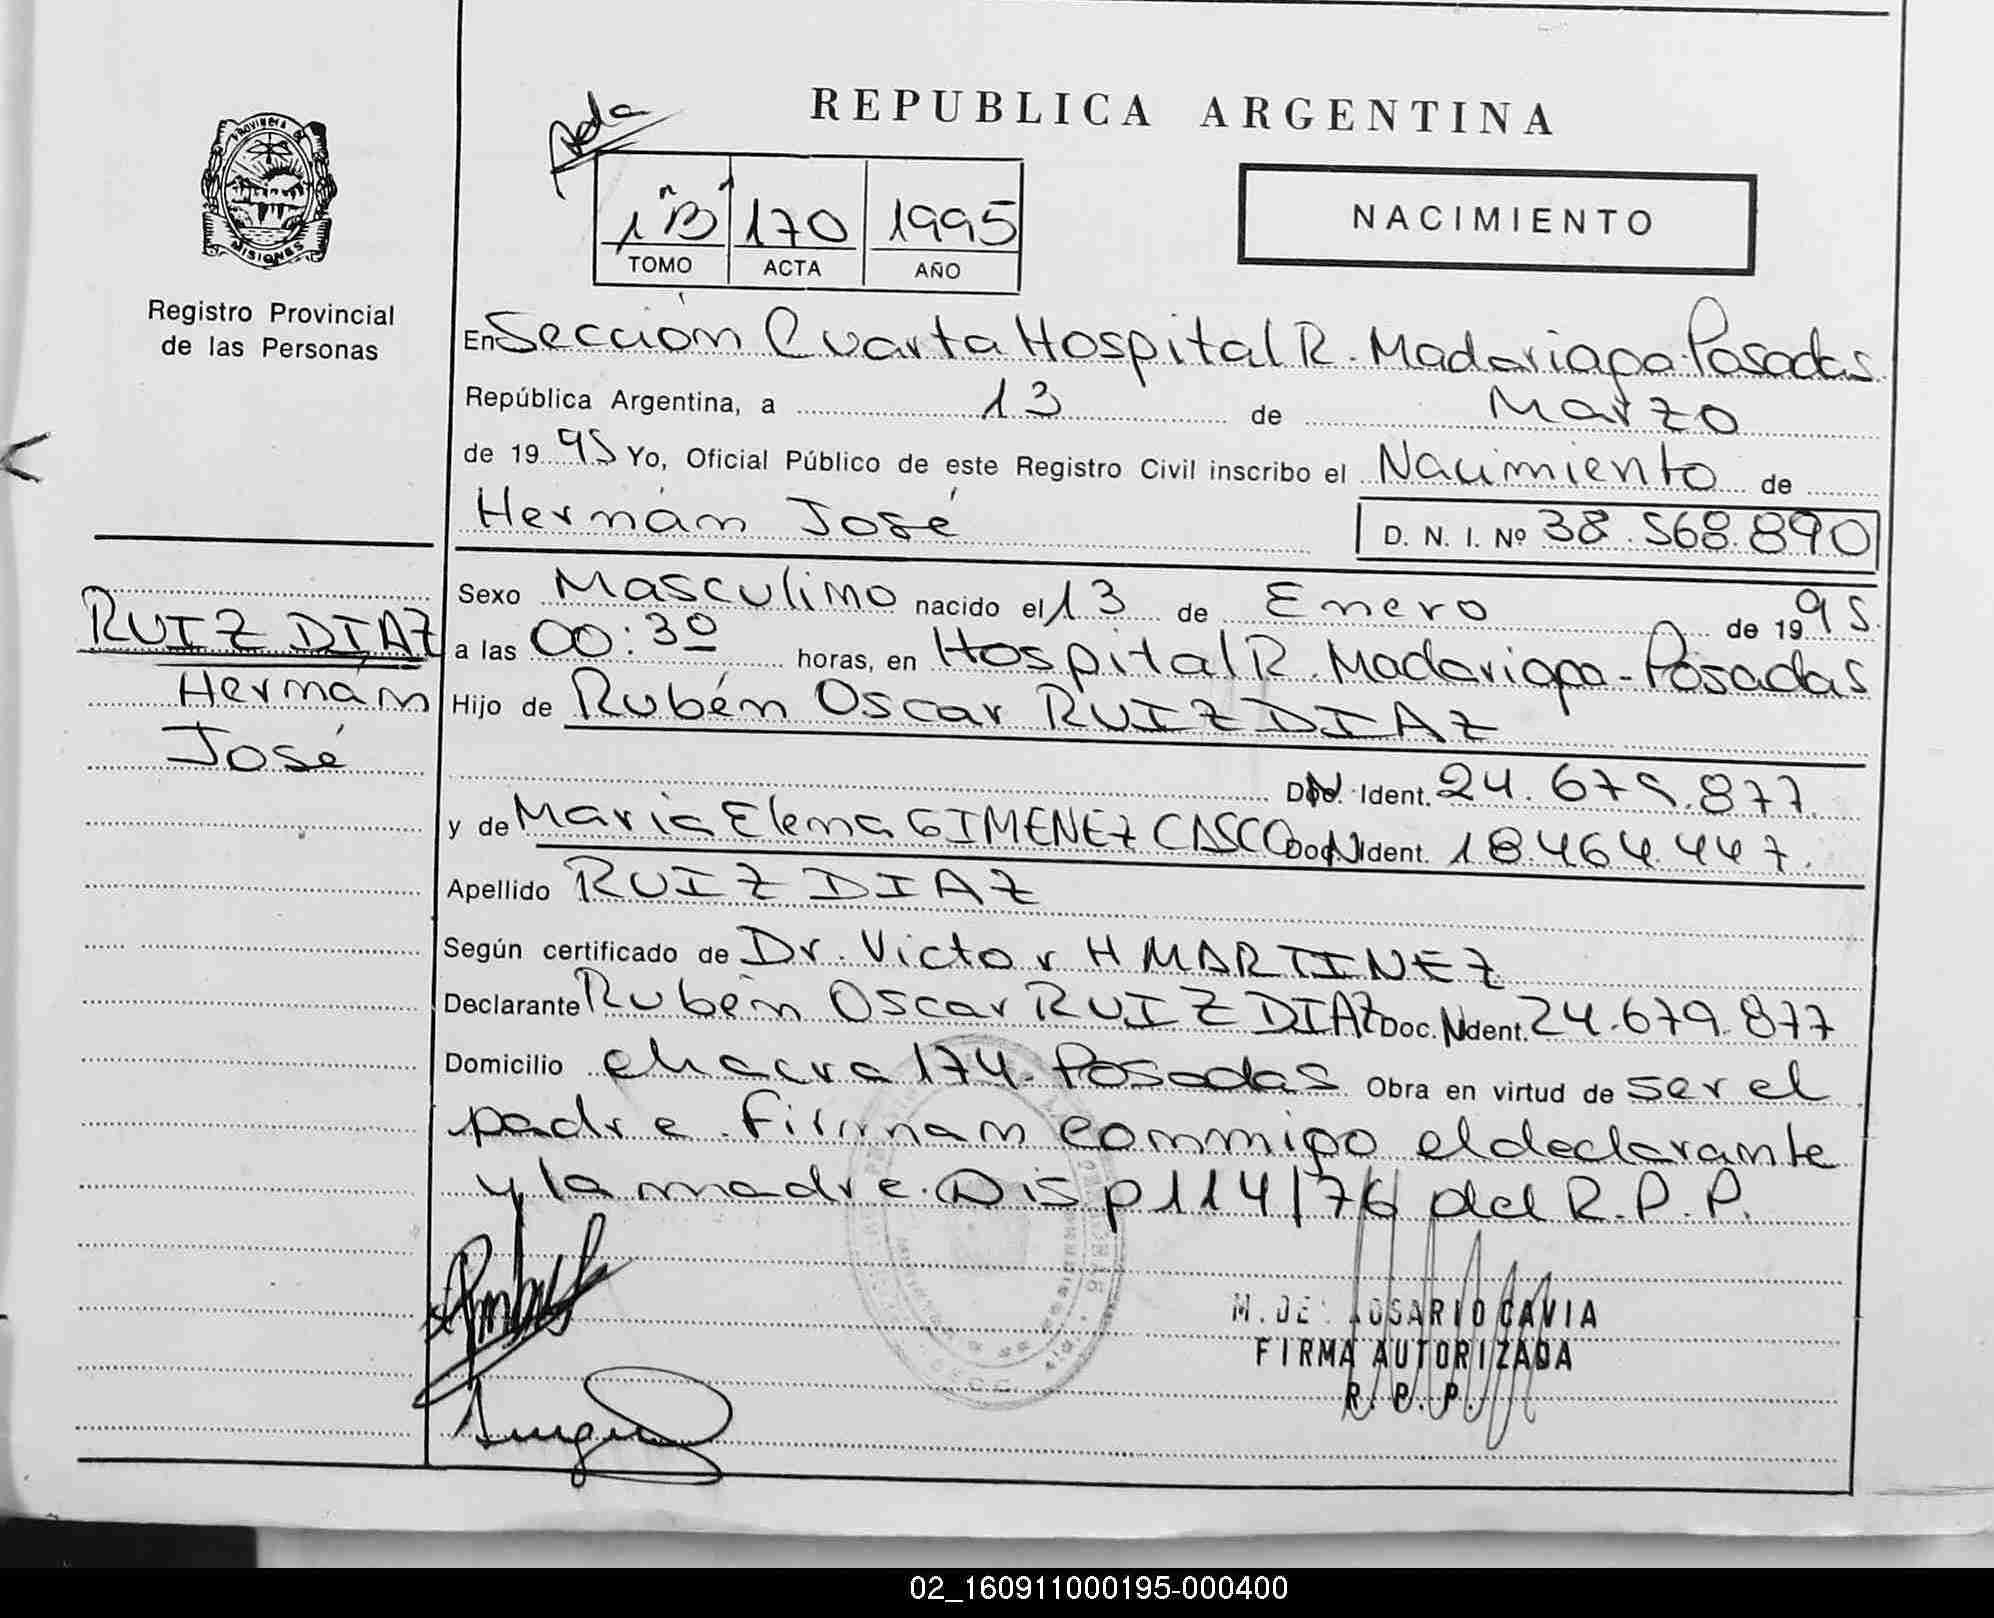 REPUBLICA ARGENTINA
PROVINCIA DE MISIONES
Registro Provincial
de las Personas
1 "B" 170 1995
TOMO ACTA AÑO
NACIMIENTO
En Sección Cuarta Hospital R. Madariaga - Posadas
República Argentina, a 13 de Marzo
de 19 95 Yo, Oficial Público de este Registro Civil inscribo el Nacimiento de
Hernán José D. N. I. Nº 38.568.890
RUIZ DIAZ
Hernán
José
Sexo Masculino nacido el 13 de Enero de 19 95
a las 00:30 horas, en Hospital R. Madariaga - Posadas
Hijo de Rubén Oscar RUIZ DIAZ
Ident. 24.679.877
y de Maria Elena GIMENEZ CASCO Doc. N Ident. 18.464.447.
Apellido RUIZ DIAZ
Según certificado de Dr. Victor H MARTINEZ
Declarante Rubén Oscar RUIZ DIAZ Doc. N Ident. 24.679.877
Domicilio chacra 174 - Posadas Obra en virtud de ser el
padre. Firman conmigo el declarante
y la madre. Disp 114/76 del R.P.P.
M. DEL ROSARIO CAVIA
FIRMA AUTORIZADA
R. P. P.
02_160911000195-000400